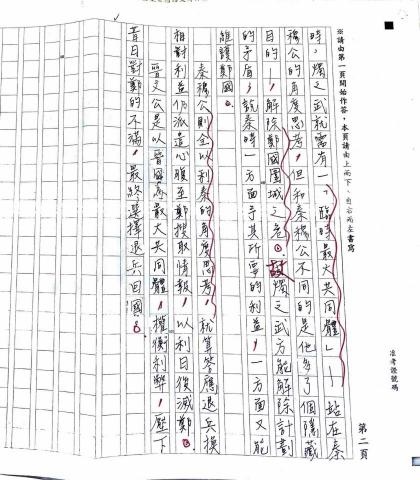 ※請由第一頁開始作答，本頁請由上而下、自右而左書寫
准考證號碼
第二頁
時，燭之武就需有一「臨時最大共同體」—站在秦
穆公的角度思考，但和秦穆公不同的是他多了個隱藏
目的—解除鄭國圍城之危。故燭之武方能解除計劃
的矛盾，說秦時一方面予其所要的利益，一方面又能
維護鄭國。
秦穆公則全以利秦的角度思考，就算答應退兵換
相對利益仍派遣心腹至鄭摸取情報，以利日後滅鄭。
晉文公是以晉國為最大共同體，權衡利弊，壓下
昔日對鄭的不滿，最終選擇退兵回國。